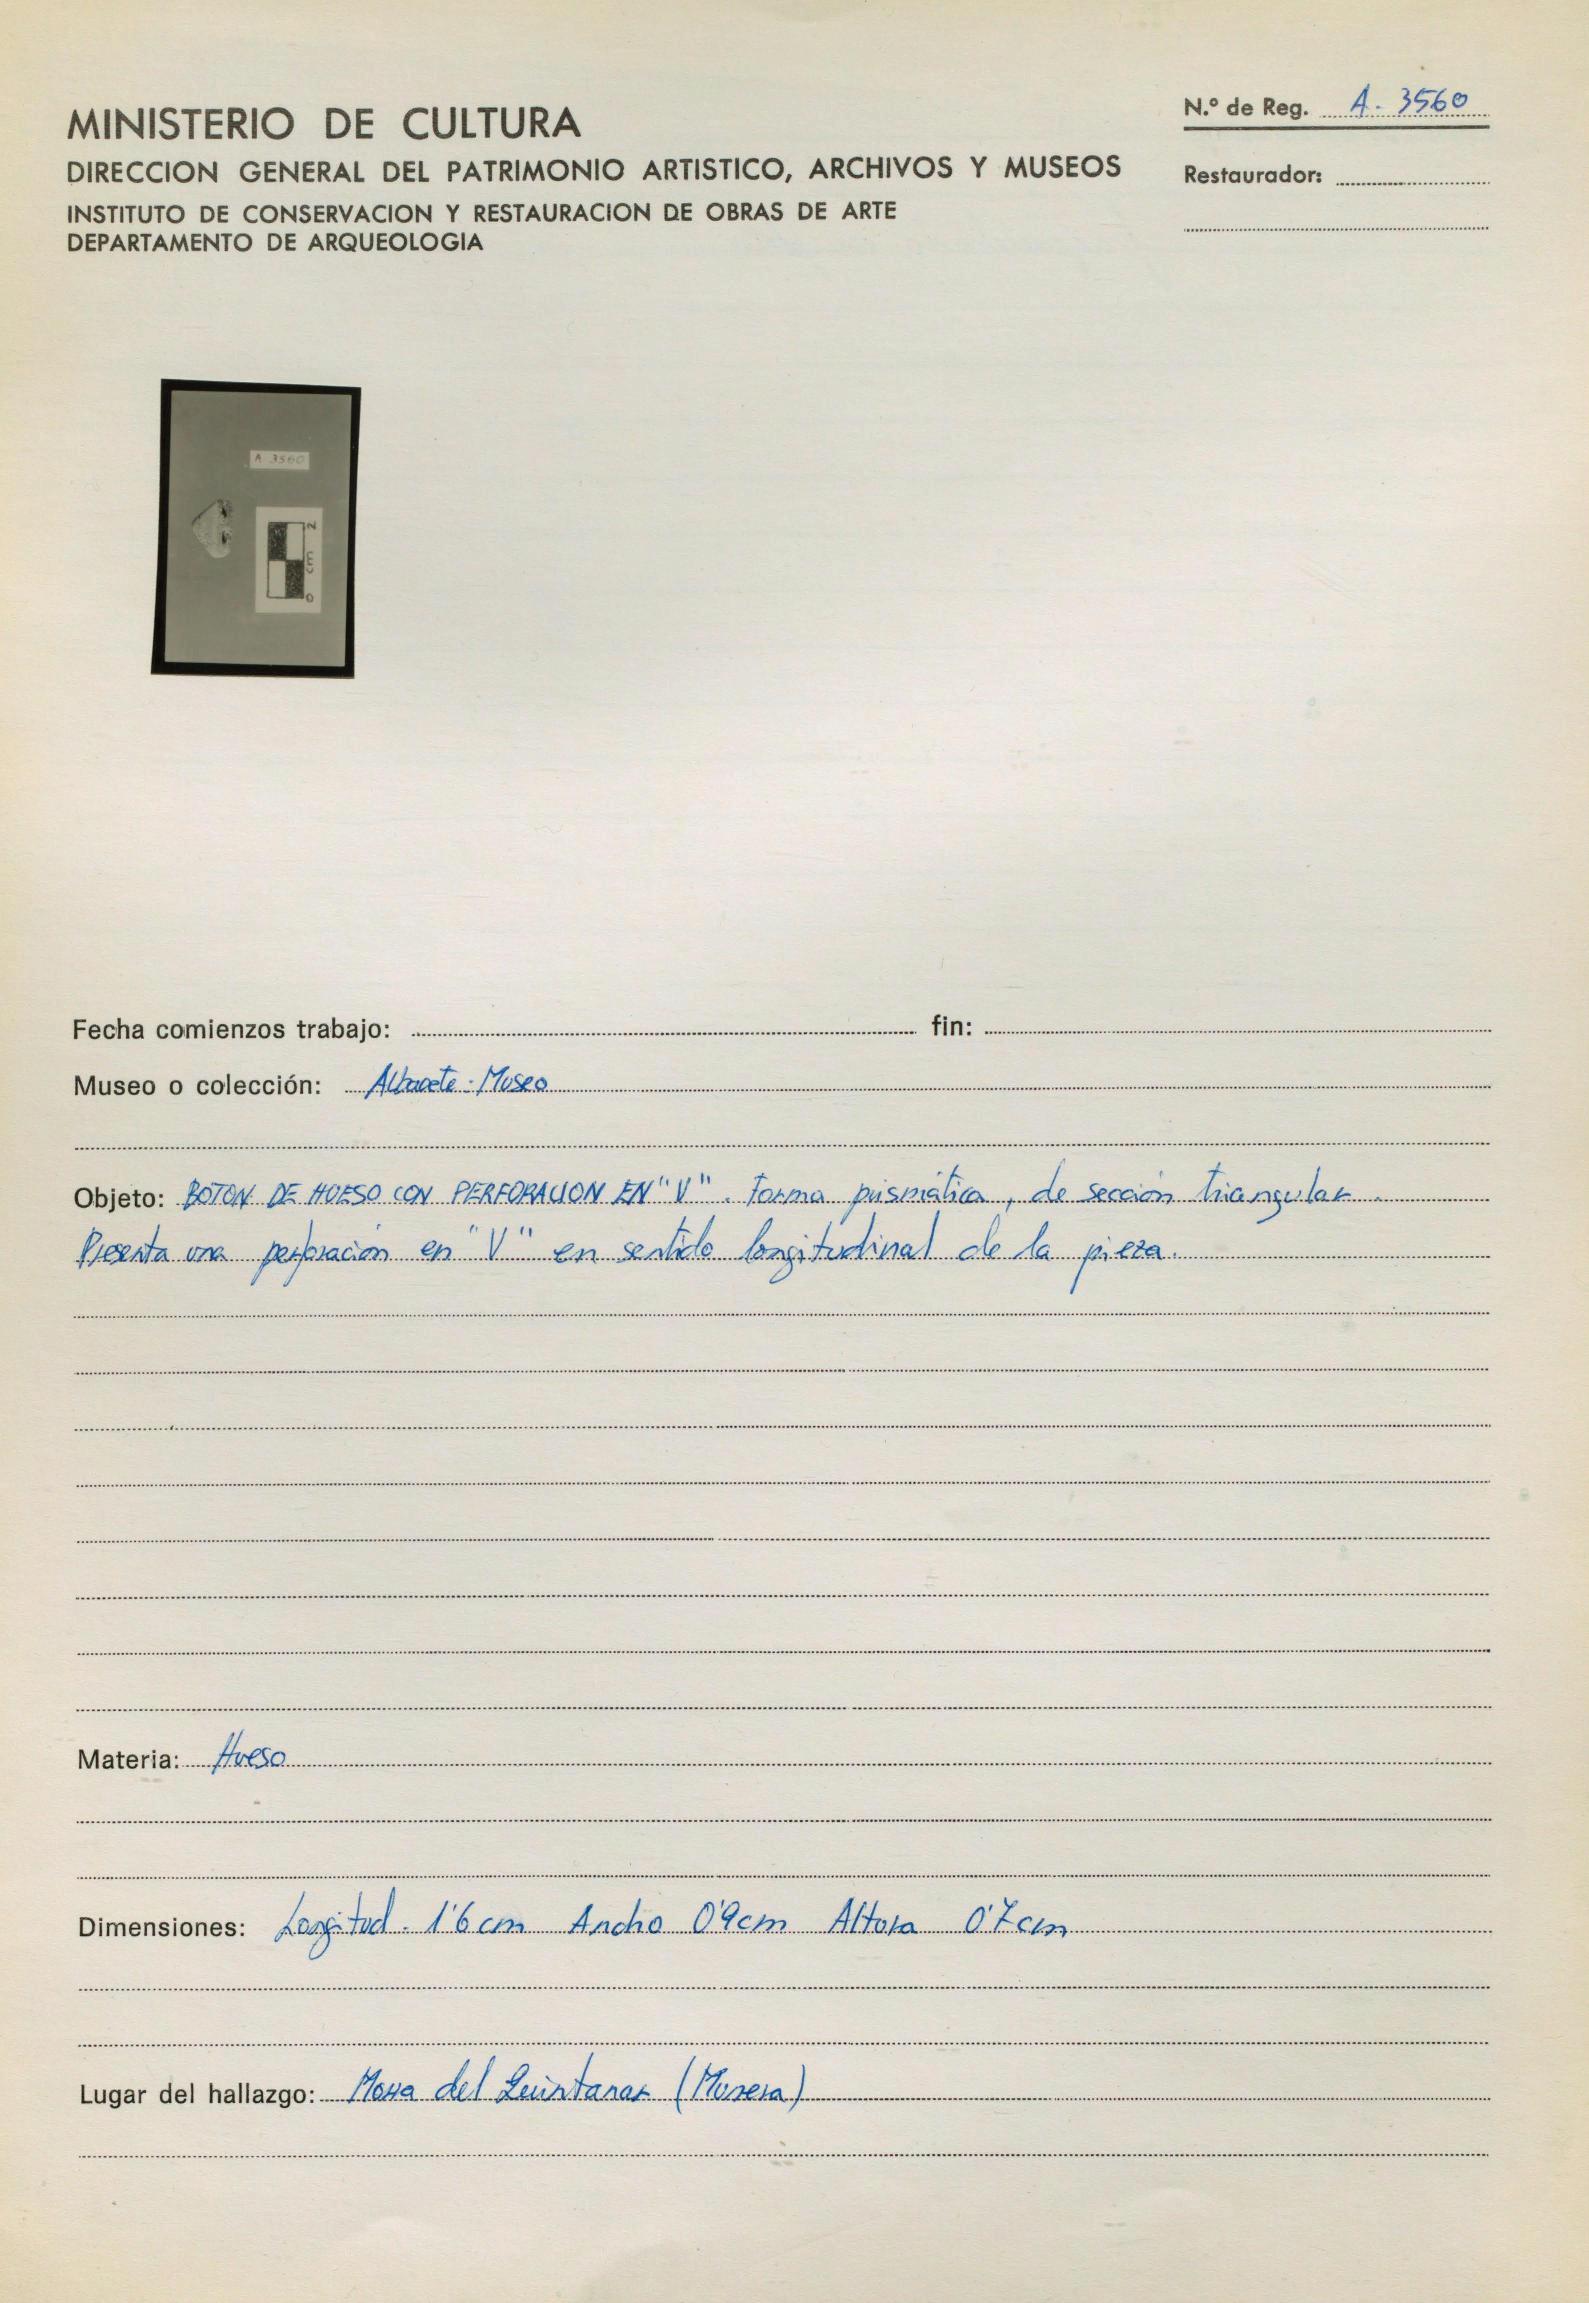 MINISTERIO DE CULTURA
DIRECCION GENERAL DEL PATRIMONIO ARTISTICO, ARCHIVOS Y MUSEOS
INSTITUTO DE CONSERVACION Y RESTAURACION DE OBRAS DE ARTE
DEPARTAMENTO DE ARQUEOLOGIA
N.º de Reg. A-3560
Restaurador:
A 3560
0 cm 2
Fecha comienzos trabajo: fin:
Museo o colección: Albacete-Museo
Objeto: BOTON DE HUESO CON PERFORACION EN "V". Forma prismática, de sección triangular.
Presenta una perforación en "V" en sentido longitudinal de la pieza.
Materia: Hueso
Dimensiones: Longitud. 1'6 cm Ancho 0'9cm Altura 0'7cm
Lugar del hallazgo: del Quintanar (Munera)